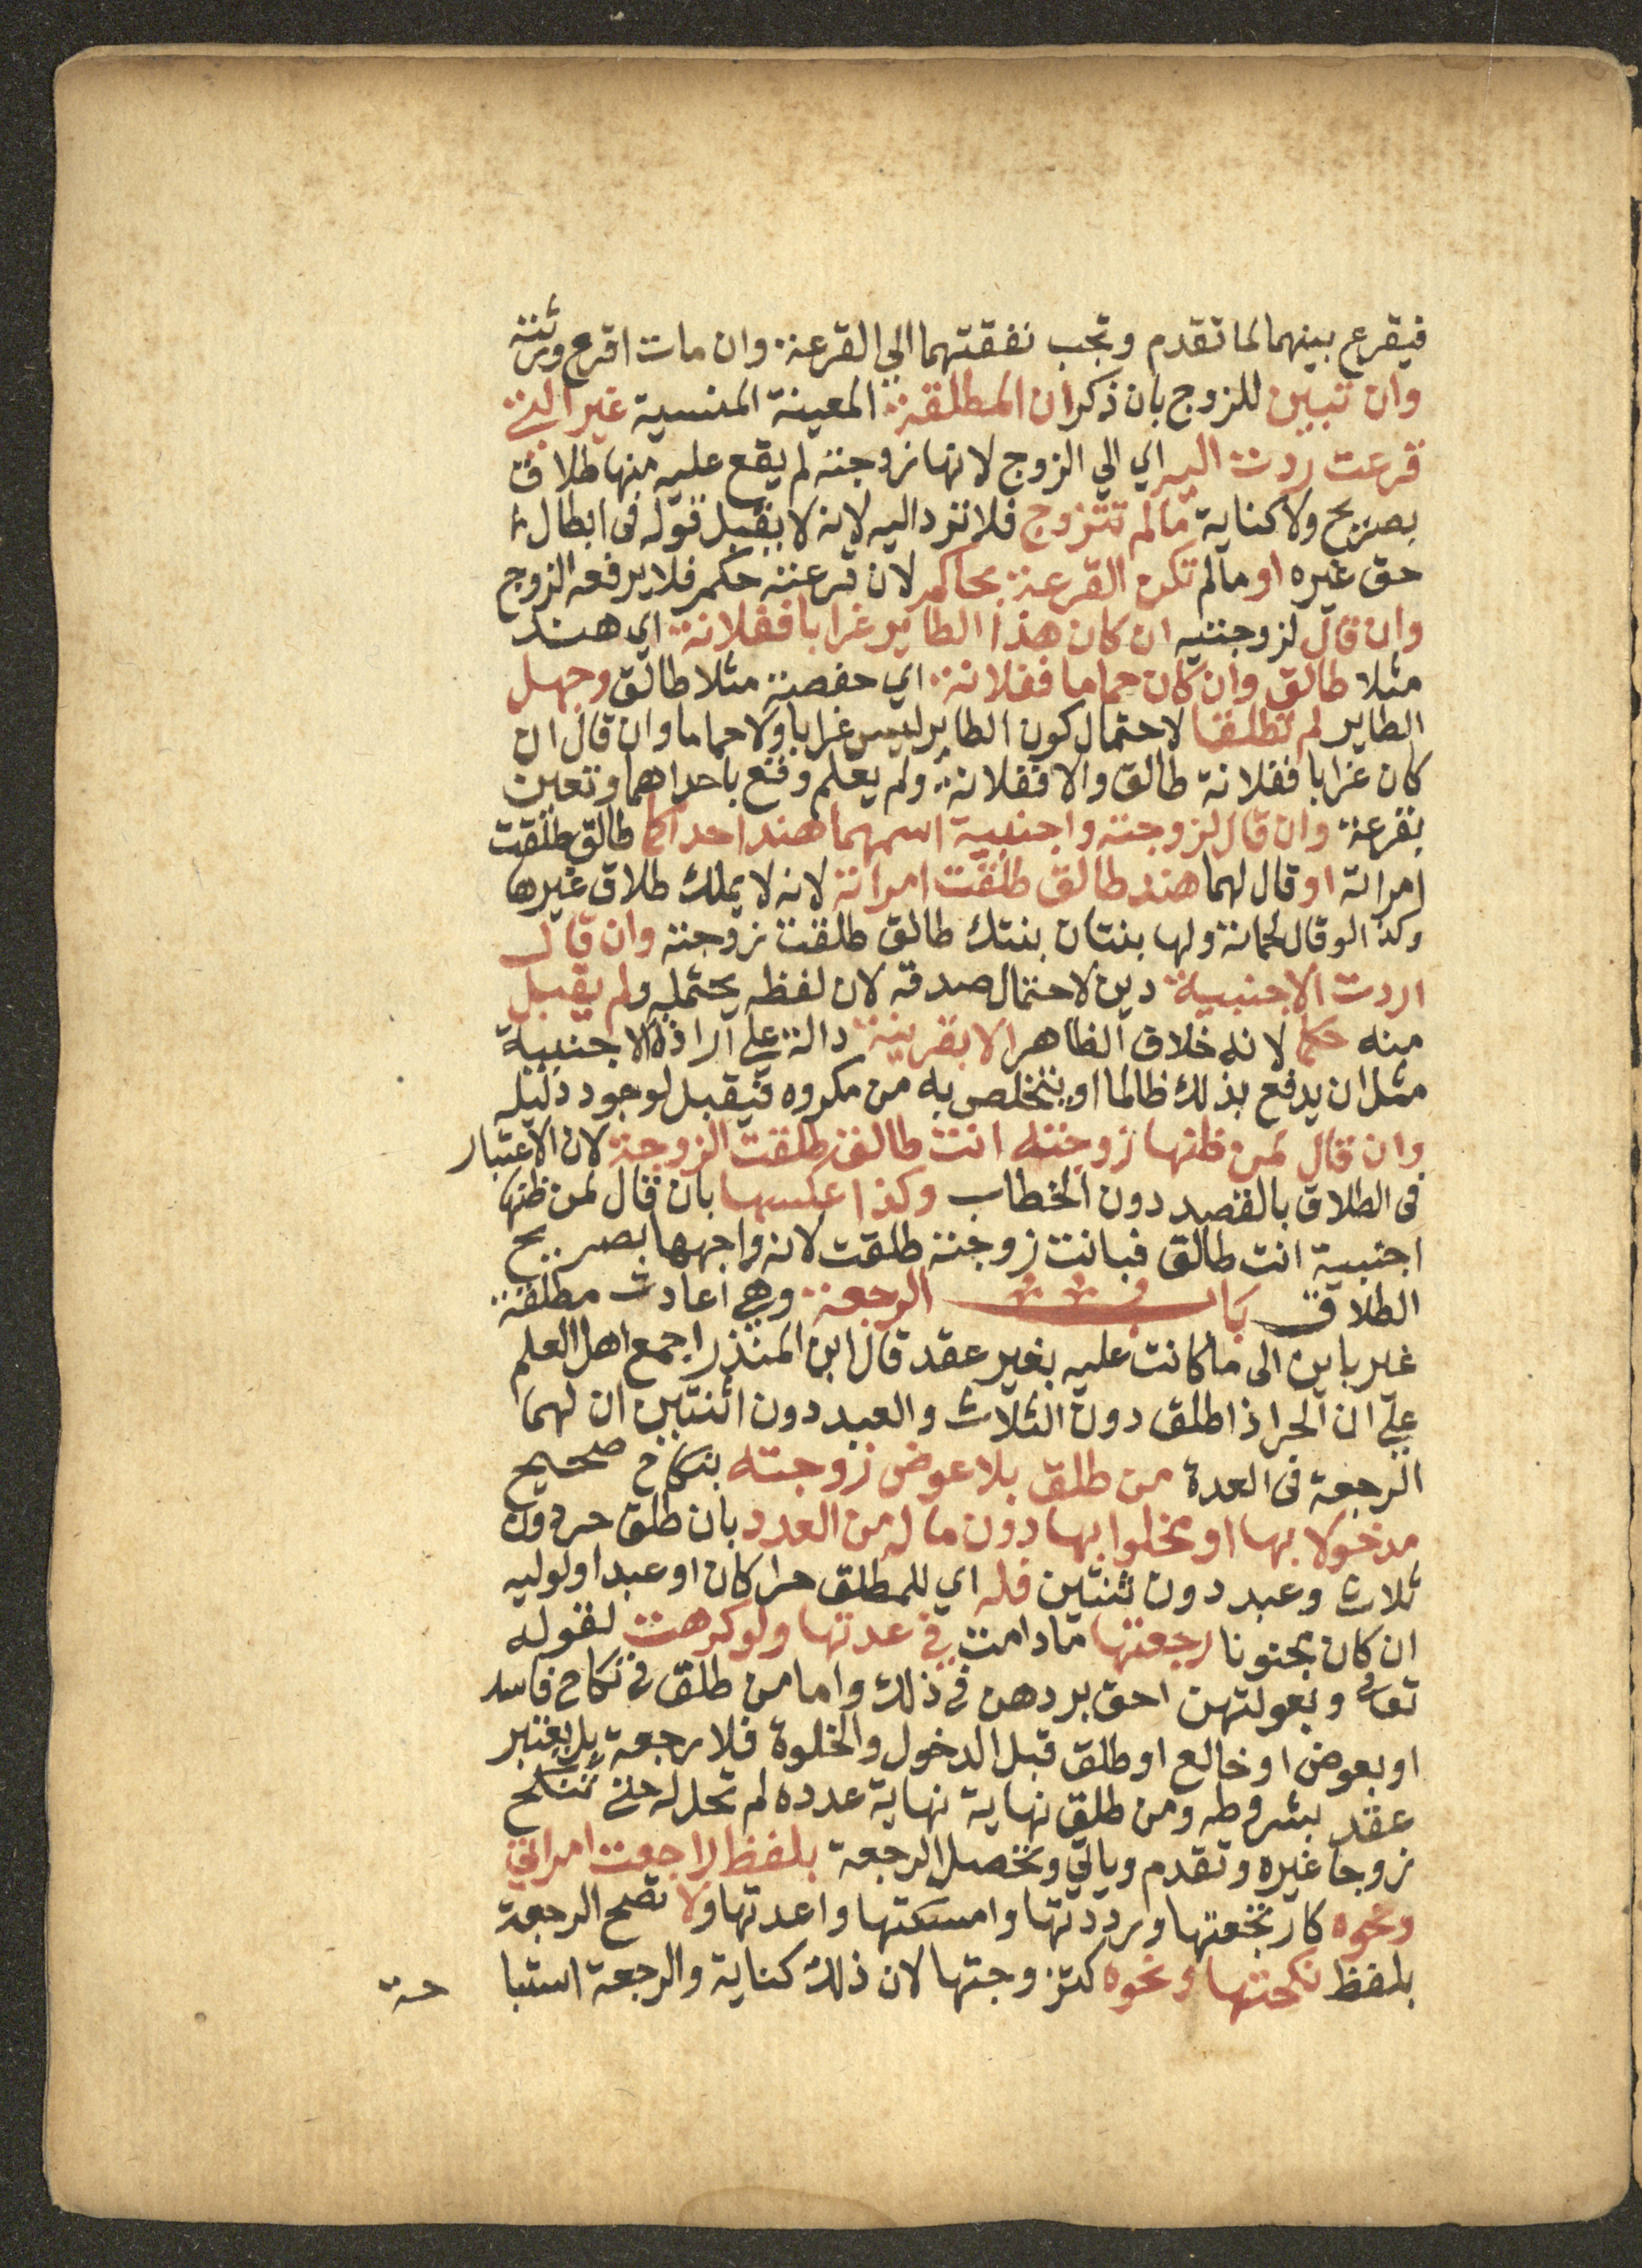 فيقرع بينهما لما تقدم وتجب نفقتهما الي القرعة وان مات اقرع ورثته
وان تبين للزوج بان ذكر ان المطلقة المعينة المنسية غير التي
قرعت ردت اليه اي الي الزوج لانها زوجته لم يقع عليه منها طلاق
بصريح ولا كناية ما لم تتزوج فلا ترد اليه لانه لا يقبل قوله فى ابطال
حق غيره او ما لم تكن القرعة بحاكم لان قرعته حكم فلا يرفعه الزوج
وان قال لزوجتيه ان كان هذا الطاير غرابا ففلانة اي هند
مثلا طالق وان كان حماما ففلانة اي حفصة مثلا طالق وجهل
الطاير لم تطلقا لاحتمال كون الطاير ليس غرابا ولا حماما وان قال ان
كان غرابا ففلانة طالق والا ففلانة ولم يعلم وقع باحداهما وتعين
بقرعة وان قال لزوجته واجنبية اسمهما هند احداكما طالق طلقت
امراته او قال لهما هند طالق طلقت امراته لانه لا يملك طلاق غيرها
وكذا لو قال لحماته ولها بنتان بنتك طالق طلقت زوجته وان قال
اردت الاجنبية دين لاحتمال صدقه لان لفظه يحتمله ولم يقبل
منه حكما لانه خلاف الظاهر الا بقرينة دالة علي ارادة الاجنبية
مثل ان يدفع بذلك ظالما او يتخلص به من مكروه فيقبل لوجود دليله
وان قال لمن ظنها زوجته انت طالق طلقت الزوجة لان الاعتبار
فى الطلاق بالقصد دون الخطاب وكذا عكسها بان قال لمن ظنها
اجنبية انت طالق فبانت زوجته طلقت لانه واجهها بصريح
الطلاق باب الرجعة وهي اعادت مطلقة
غير باين الى ما كانت عليه بغير عقد قال ابن المنذر اجمع اهل العلم
علي ان الحر اذا طلق دون الثلاث والعبد دون اثنتين ان لهما
الرجعة فى العدة من طلق بلا عوض زوجته بنكاح صحيح
مدخولا بها او مخلوا بها دون ما له من العدد بان طلق حر دون
ثلاث وعبد دون ثنتين فله اي للمطلق حرا كان او عبدا ولوليه
ان كان مجنونا رجعتها ما دامت في عدتها ولو كرهت لقوله
تعالى وبعولتهن احق بردهن في ذلك واما من طلق في نكاح فاسد
او بعوض او خالع او طلق قبل الدخول والخلوة فلا رجعة بل يعتبر
عقد بشروطه ومن طلق نهاية نهاية عدده لم تحل له حتي تنكح
زوجا غيره وتقدم وياتي وتحصل الرجعة بلفظ راجعت امراتي
ونحوه كارتجعتها ورددتها وامسكتها واعدتها ولا تصح الرجعة
بلفظ نكحتها ونحوه كتزوجتها لان ذلك كناية والرجعة استبا
حة